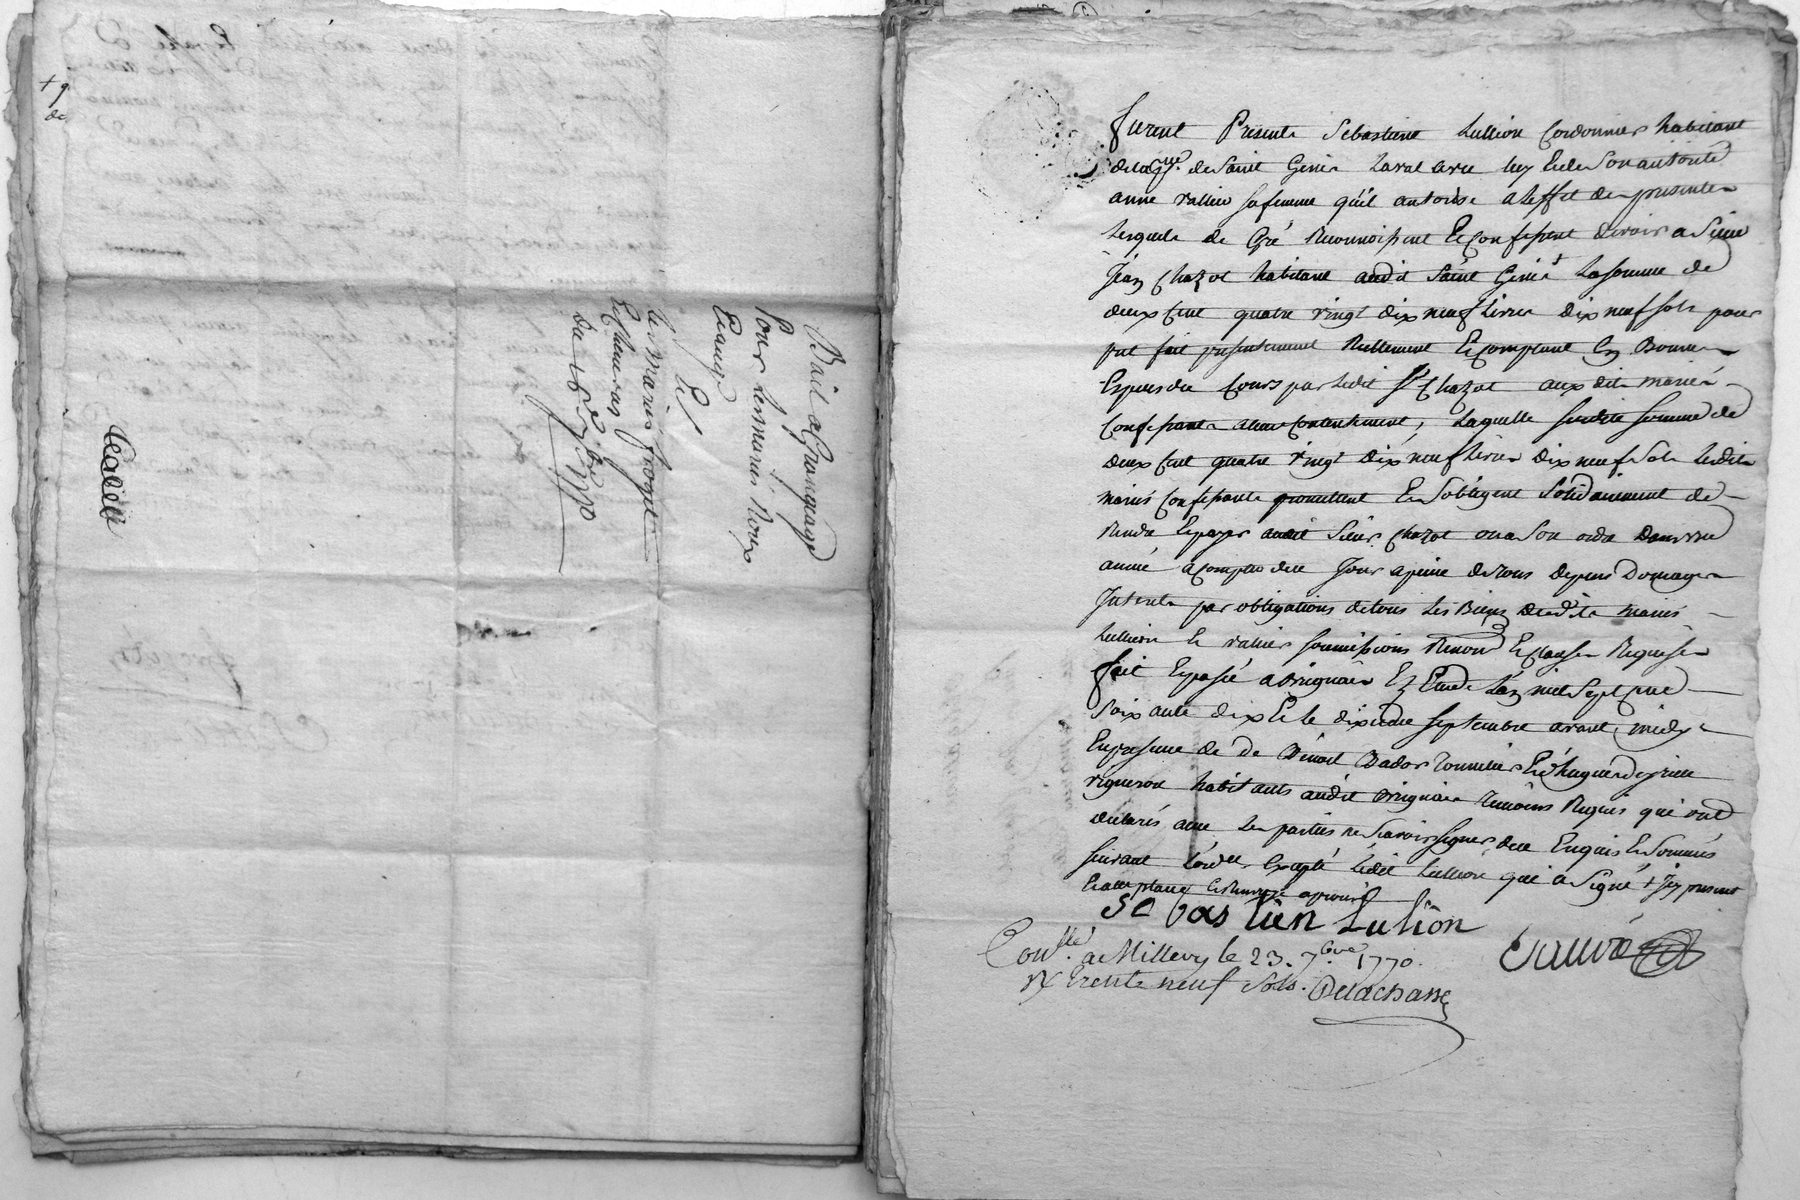 + 9
de
Bail a Grangeage
Pour Les mariés Roux
Grange
Et
Les mariés froget
Et
du 16 7bre 1770
Furent Présents Sebastiene Lullion Cordonnier habitant
de la pse. de Saint Genis Laval avec luy Et de Son autorité
anne vallier sa femme qu'il autorise a l'effet des presentes
lesquels de Gré Reconnoissent Et Confessent devoir a Sieur
Jean Chazot habitant audit Saint Genis + La somme de
deux Cent quatre vingt dix neuf Livres dix neuf sols pour
pret fait presentement Reellement Et comptant En Bonnes
Especes du Cours par Ledit Sr Chazot auxdits mariés
Confessants a leur contentement, Laquelle susdite somme de
deux Cent quatre vingt dix neuf Livres dix neuf Sols Lesdits
mariés Confessants promettent Et S'obligent Solidairement de
Rendre Et payer audit Sieur Chazot ou a Son ordre dans une
année a Compter de ce Jour a peine de tous depens Domages
Interets par obligations de tous Les Biens desdits mariés
Lullion Et vallier soumissions Renon. Et clauses Requises
fait Et passé a Brignais En Etude L'an mil Sept Cent
Soixante dix Et le dixieme Septembre avant midy
En presence de de Benoit Bador Tonnelier Et hugue
vigneron habitants audit Brignais Temoins Requis qui ont
declarés avec Les parties ne Scavoir signer de ce Enquis Et Sommés
suivant L'ordce Excepté Ledit Lullion qui a Signé + Icy present
Et acceptant Et Renvoye aprouvé
Se bas tien Lulion
Conllé. a Millery le 23. 7bre 1770.
Rx Trente neuf Sols. Delachasse